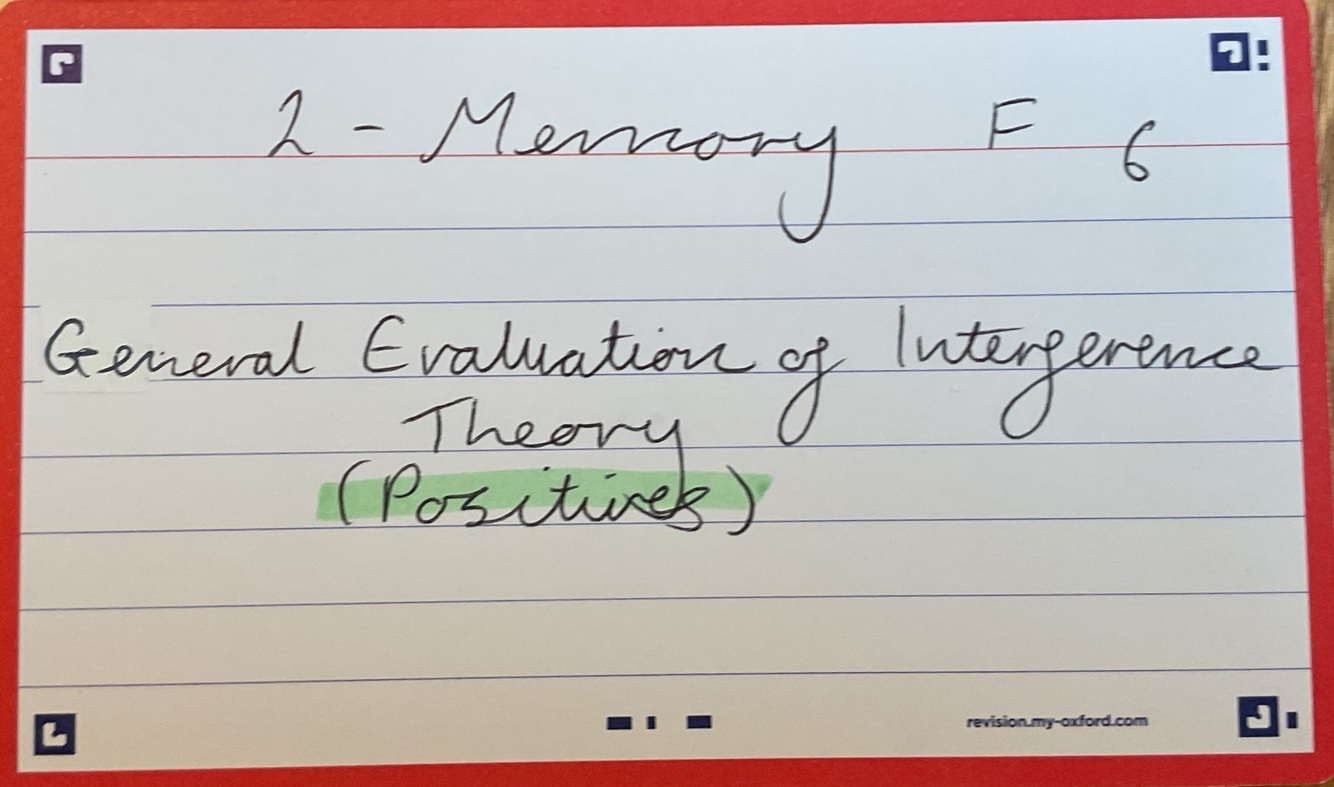 2 - Memory F 6
General Evaluation of Interference
Theory
(Positives)
revision.my-oxford.com